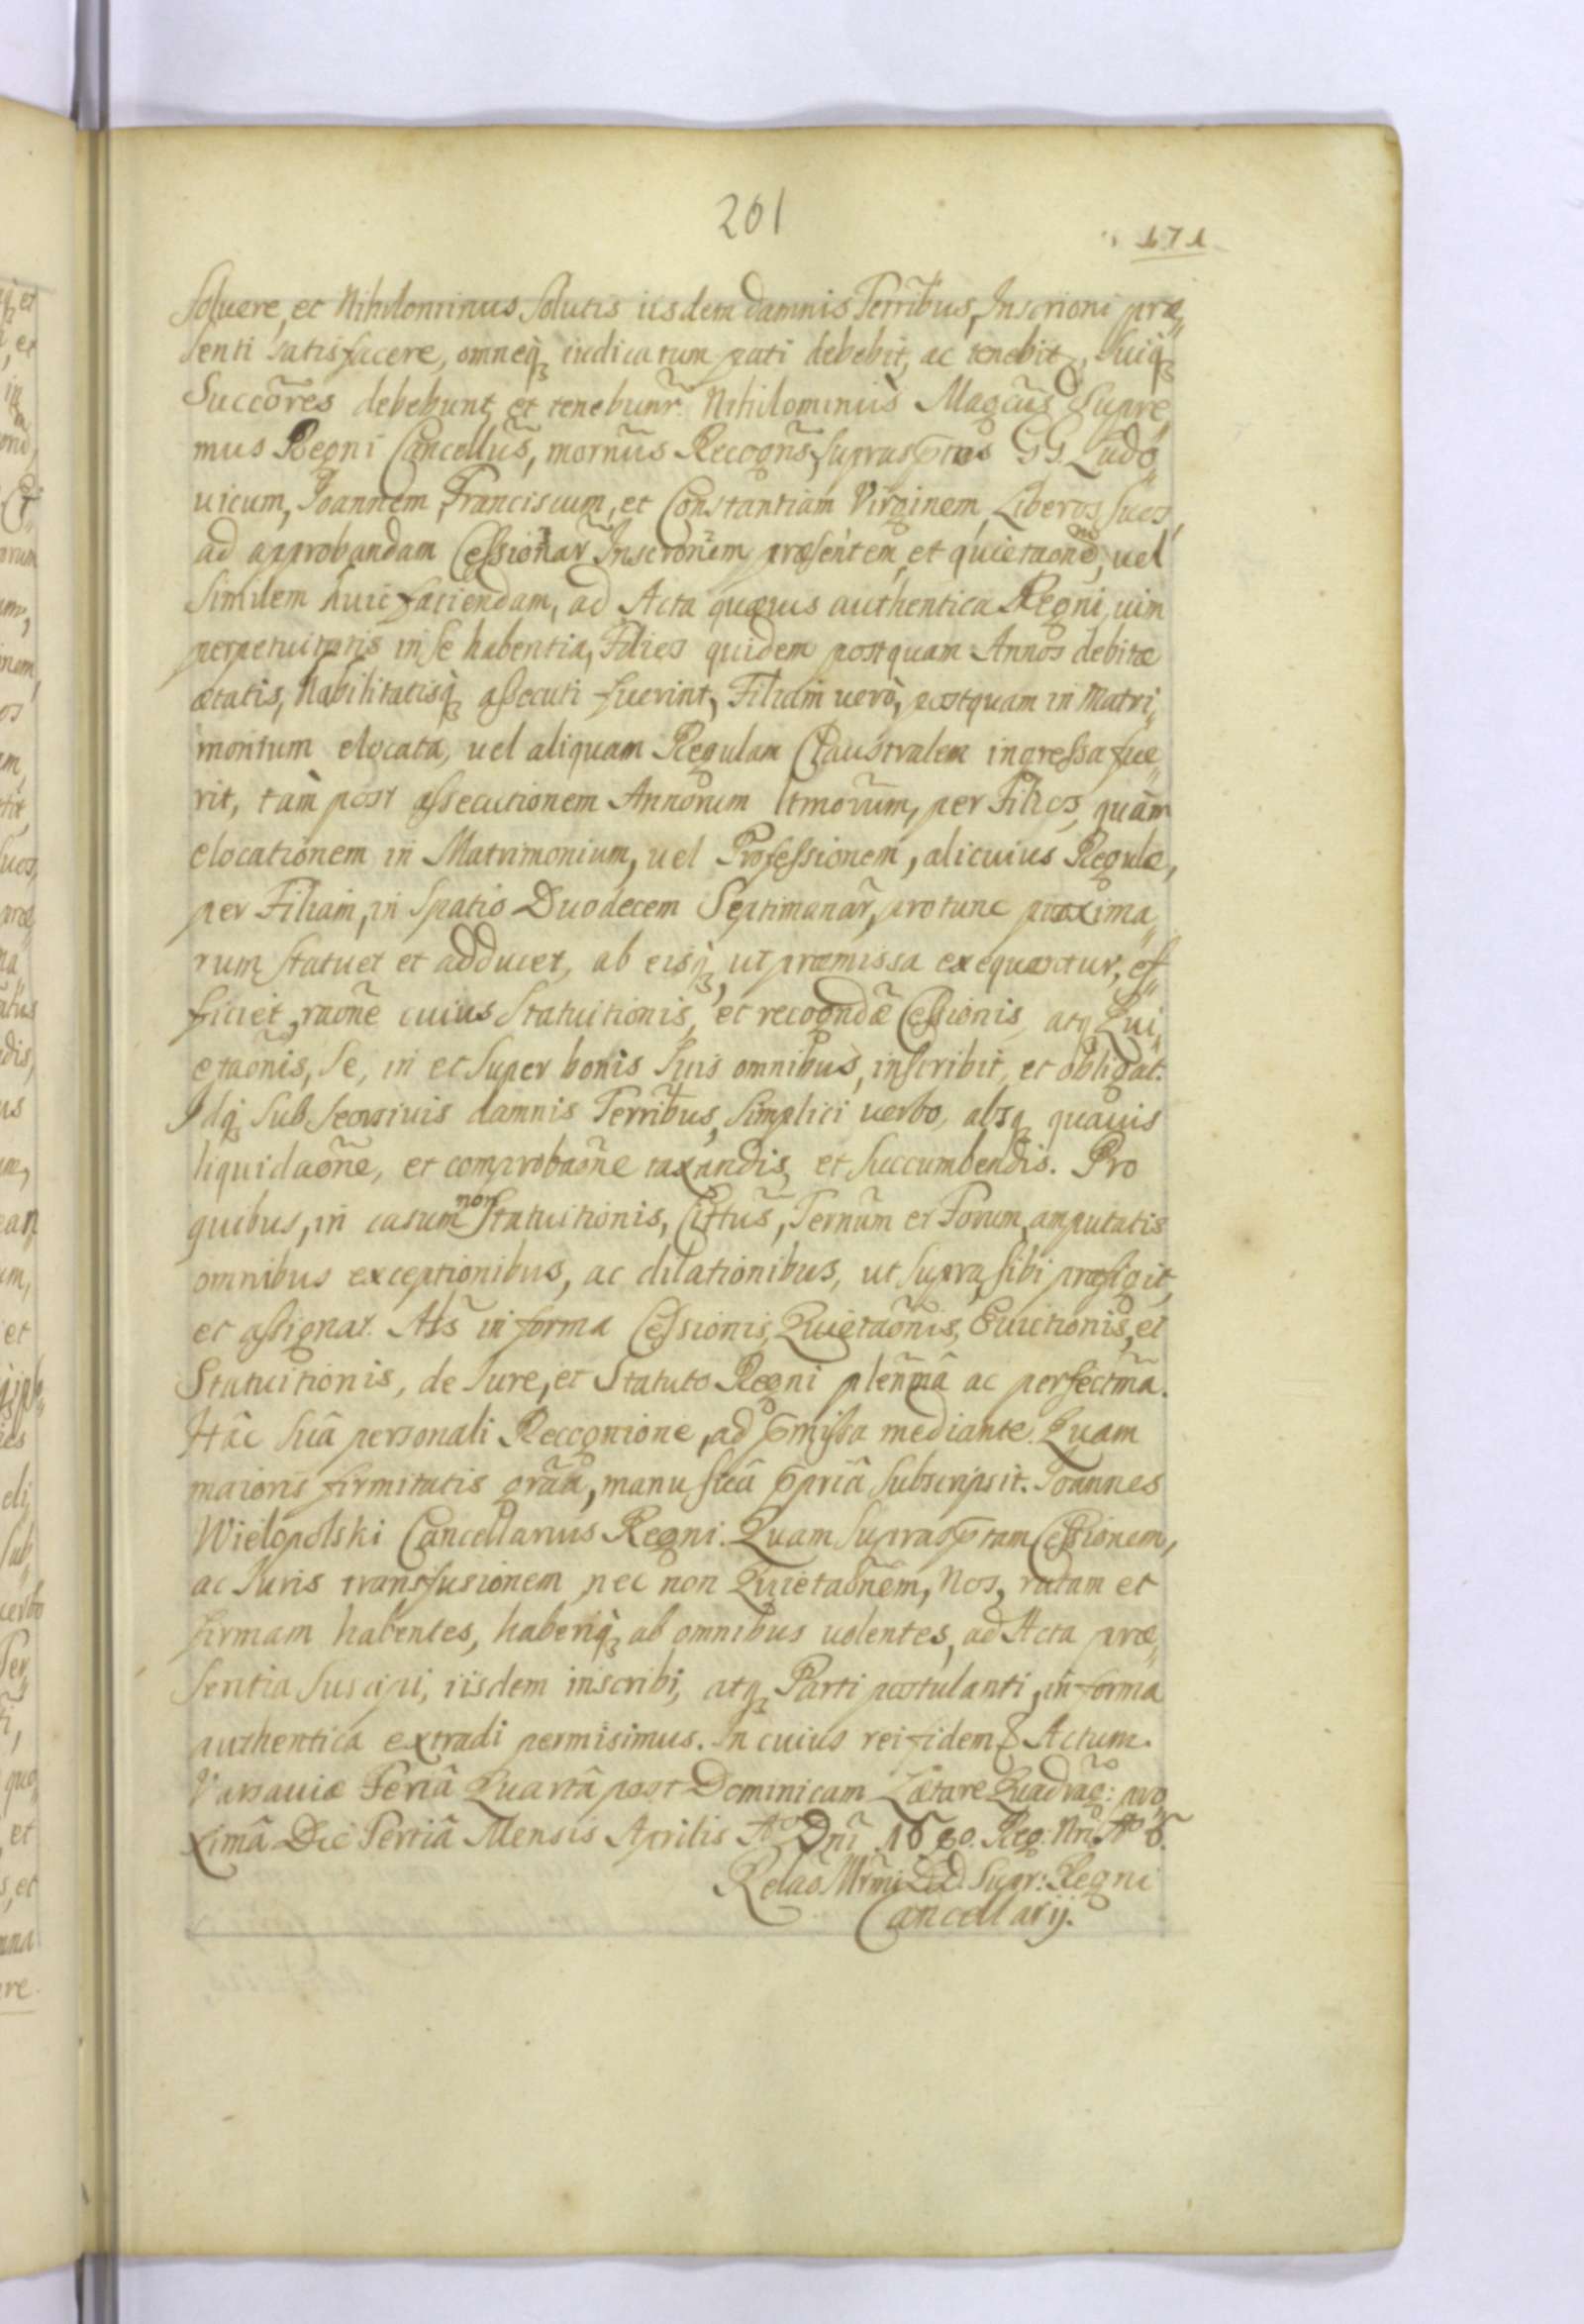 201
171
soluere, et Nihilominus solutis iisdem damnis Terribus, Inscrioni præ„
senti satisfacere, omneq́ꝫ iudicatum pati debebit, ac tenebit, suiq́ꝫ
Succõres debebunt et tenebunr̃. Nihilominùs Magcũs Supre„
mus Regni Cancellũs, Recogñs, supraspt̃us GG. Ludo„
uicum, Joannem, Franciscum, et Constantiam Virginem, Liberos suos,
ad approbandam Cessionar̃ Inscronẽm præsentem, et quietaonẽ, uel
similem huic faciendam, ad Acta quæuis authentica Regni, uim
perpetuitatis in se habentia, Filios quidem postquam Annos debitæ
ætatis, habilitatisq́ꝫ assecuti fuerint, Filiam uerò, postquam in Matri„
monium elocata, uel aliquam Regulam Claustralem ingressa fue„
rit, tàm post assecutionem Annorum ltmorũm, per Filios, quàm
elocationem in Matrimonium, uel Professionem, alicuius Regulæ,
per Filiam, in spatio Duodecem Septimanar̃, protunc proxima„
rum statuet et adducet, ab eisq́ꝫ, ut præmissa exequantur, ef„
ficiet, raonẽ cuius Statuitionis, et recogndæ̃ Cessionis, atqꝫ Qui„
etaonĩs, Se, in et super bonis suis omnibus, inscribit, et obligat.
Idqꝫ sub secusiuis damnis Terribus, simplici uerbo, absqꝫ quauis
liquidaonẽ, et comprobaonẽ taxandis, et succumbendis. Pro
quibus, in casum non Statuitionis, Cittũs, Ternũm et Forum, amputatis
omnibus exceptionibus, ac dilationibus, ut supra, sibi præfigit,
et assignat. Als̃ in forma Cessionis, Quietaonĩs, Euictionis, et
Statuitionis, de Jure, et Statuto Regni plenm̃â ac perfectm̃a.
Hâc suâ personali Recognione, ad p̃missa mediante. Quam
maioris firmitatis grãa, manu suâ p̃priâ subscripsit. Joannes
Wielopolski Cancellarius Regni. Quam suprasp̃tam Cessionem,
ac Juris transfusionem nec non Quietaonẽm, Nos, ratam et
firmam habentes, haberiq́ꝫ ab omnibus uolentes, ad Acta præ„
sentia suscipi, iisdem inscribi, atqꝫ Parti postulanti, in forma
authentica extradi permisimus. In cuius rei fidem & Actum.
Varsauiæ Feriâ Quartâ post Dominicam Lætare Quadrag̃: pro„
ximâ Die Tertiâ Mensis Aprilis Aº Dnĩ 1680. Reg: Nrĩ Aº 6.
Relaõ Mr̃mi DD. Supr: Regni
Cancellarij.